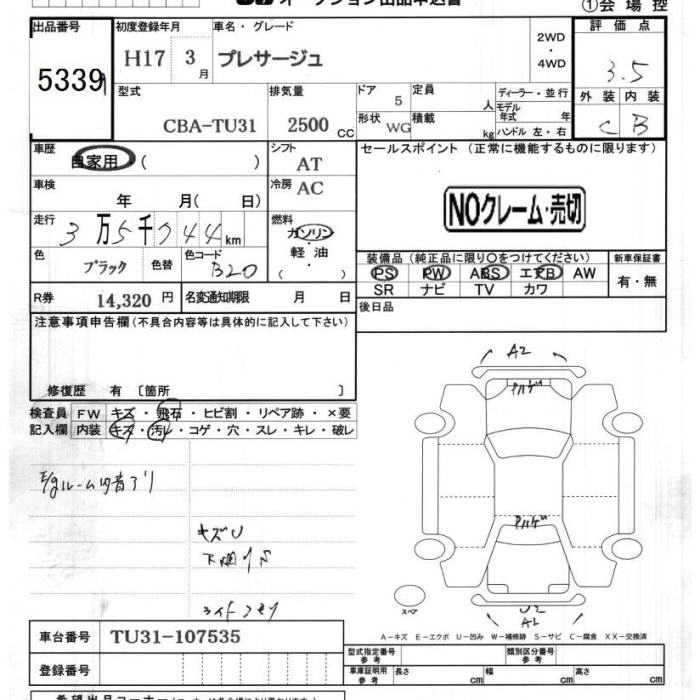 オークション出品申込書
①会場控
出品番号
初度登録年月
車名・グレード
2WD
・
4WD
評価点
5339
H17
3月
プレサージュ
3.5
型式
排気量
ドア 5
定員 人
ディーラー・並行
外装
内装
CBA-TU31
2500 CC
形状 WG
積載 kg
モデル年式 年
ハンドル 左・右
C
B
車歴
自家用 ( )
シフト
AT
セールスポイント (正常に機能するものに限ります)
車検
年 月( 日)
冷房
AC
NOクレーム・売切
走行
3万5千744km
燃料
ガソリン
・
軽油
( )
色
ブラック
色替
色コード
B20
装備品 (純正品に限り〇をつけてください)
新車保証書
PS PW ABS エアB AW
SR ナビ TV カワ
有・無
R券
14,320 円
名変通知期限 月 日
後日品
注意事項申告欄(不具合内容等は具体的に記入して下さい)
修復歴 有 〔箇所 〕
A2
検査員
FW
キズ・飛石・ヒビ割・リペア跡・×要
記入欄
内装
キズ・汚レ・コゲ・穴・スレ・キレ・破レ
キズU
スペア
A-キズ E-エクボ U-凹み W-補修跡 S-サビ C-腐食 XX-交換済
車台番号
TU31-107535
登録番号
型式指定番号
参考
類別区分番号
参考
車庫証明用
参考
長さ cm
幅 cm
高さ cm